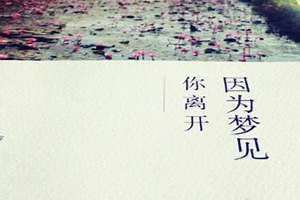 因为梦见
你离开